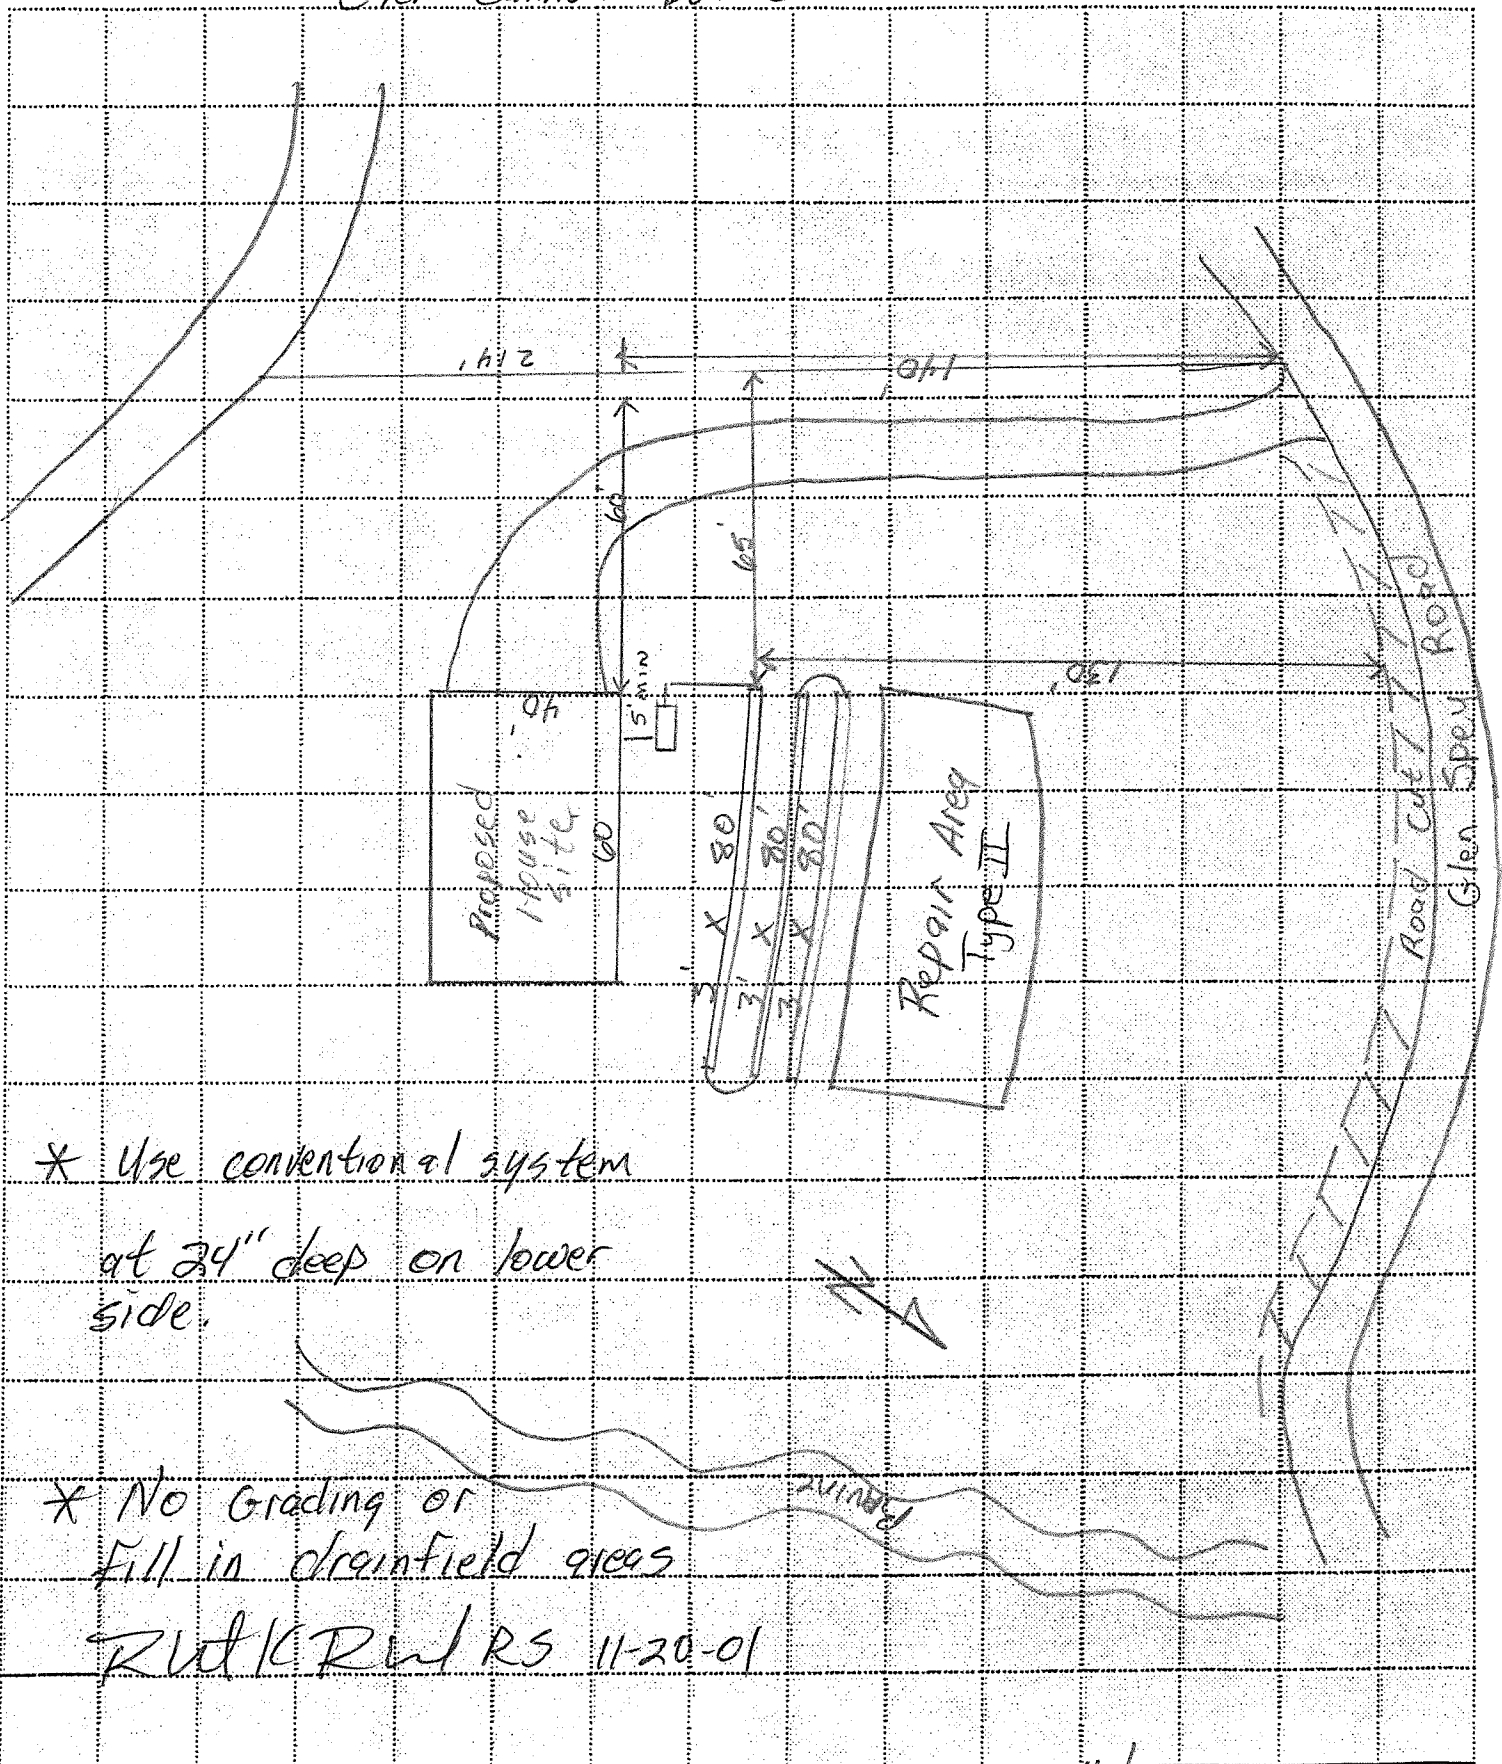 214'
140'
60'
65'
130'
40'
15' min
Proposed
House
Site
60
3' X 80'
3' X 80'
3' X 80'
Repair Area
Type II
Road Cut
Glen Spey Road
* Use conventional system
at 24" deep on lower
side.
N
Ravine
* No Grading or
Fill in drainfield areas
RS 11-20-01